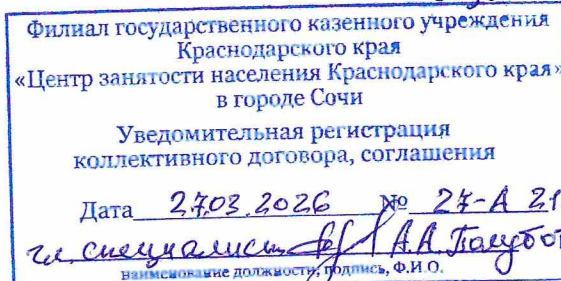 Филиал государственного казенного учреждения
Краснодарского края
«Центр занятости населения Краснодарского края»
в городе Сочи
Уведомительная регистрация
коллективного договора, соглашения
Дата 27.03.2026 № 27-А 21
гл. специалист А.А.
наименование должности, подпись, Ф.И.О.